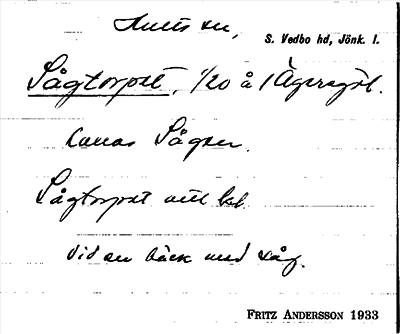 Hults sn,
S. Vedbo hd, Jönk. l.
Sågtorpet, 1/20 å 1 Ägersgöl.
kallas Sågen.
Sågtorpet utt. lsl.
Vid en bäck med såg.
FRITZ ANDERSSON 1933